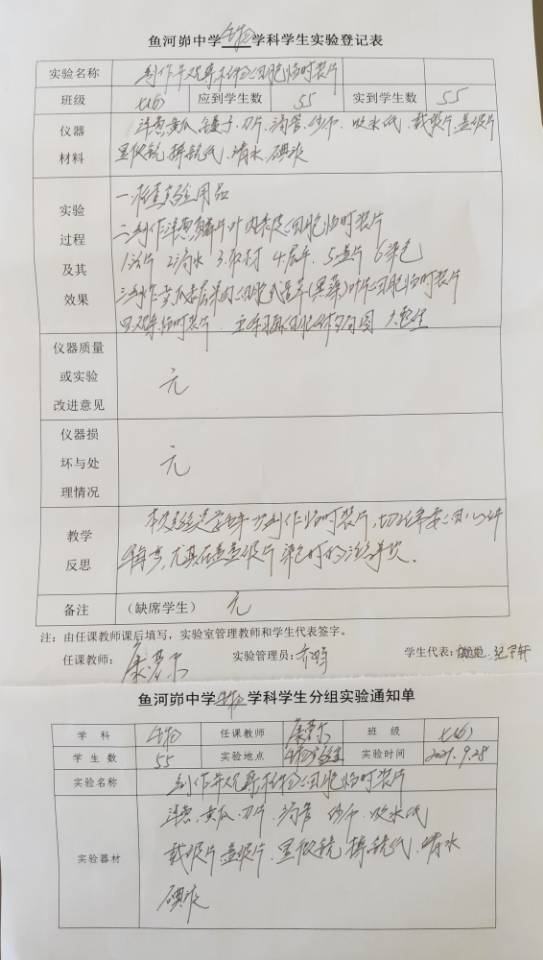 鱼河峁中学生物学科学生实验登记表
实验名称 制作并观察植物细胞临时装片
班级 七(6) 应到学生数 55 实到学生数 55
仪器 洋葱、黄瓜、镊子、刀片、滴管、纱布、吸水纸、载玻片、盖玻片
材料 显微镜、擦镜纸、清水、碘液
实验
过程
及其
效果
一、检查实验用品
二、制作洋葱鳞片叶内表皮细胞临时装片
2.滴水 3.取材 4.展平 5.盖片 6.染色
三、制作黄瓜表层果肉细胞或黑藻叶片细胞临时装片
四、观察临时装片
仪器质量
或实验
改进意见
无
仪器损
坏与处
理情况
无
教学
反思
临时装片
尤其在盖盖玻片、染色时
备注 (缺席学生) 无
注：由任课教师课后填写，实验室管理教师和学生代表签字。
任课教师： 实验管理员： 学生代表：
鱼河峁中学生物学科学生分组实验通知单
学 科 生物 任课教师 班 级 七(6)
学 生 数 55 实验地点 生物实验室 实验时间 2021.9.28
实验名称 制作并观察植物细胞临时装片
实验器材
洋葱、黄瓜、刀片、滴管、纱布、吸水纸
载玻片、盖玻片、显微镜、擦镜纸、清水
碘液